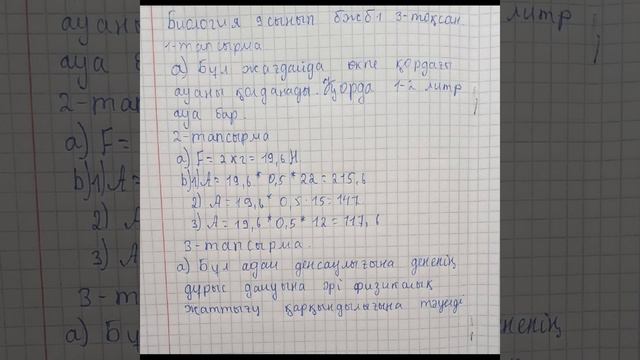 Биология 9 сынып бжб1 3-тоқсан.
1-тапсырма
а) Бұл жағдайда өкпе қордағы
ауаны қолданады. Қорда 1-2 литр
ауа бар.
2-тапсырма
а) F = 2кг = 19,6 Н
b)1) A = 19,6 * 0,5 * 22 = 215,6
2) A = 19,6 * 0,5 · 15 = 147
3) A = 19,6 * 0,5 * 12 = 117,6
3-тапсырма.
а) Бұл адам денсаулығына дененің
дұрыс дамуына әрі физикалық
жаттығу қарқындылығына тәуелді